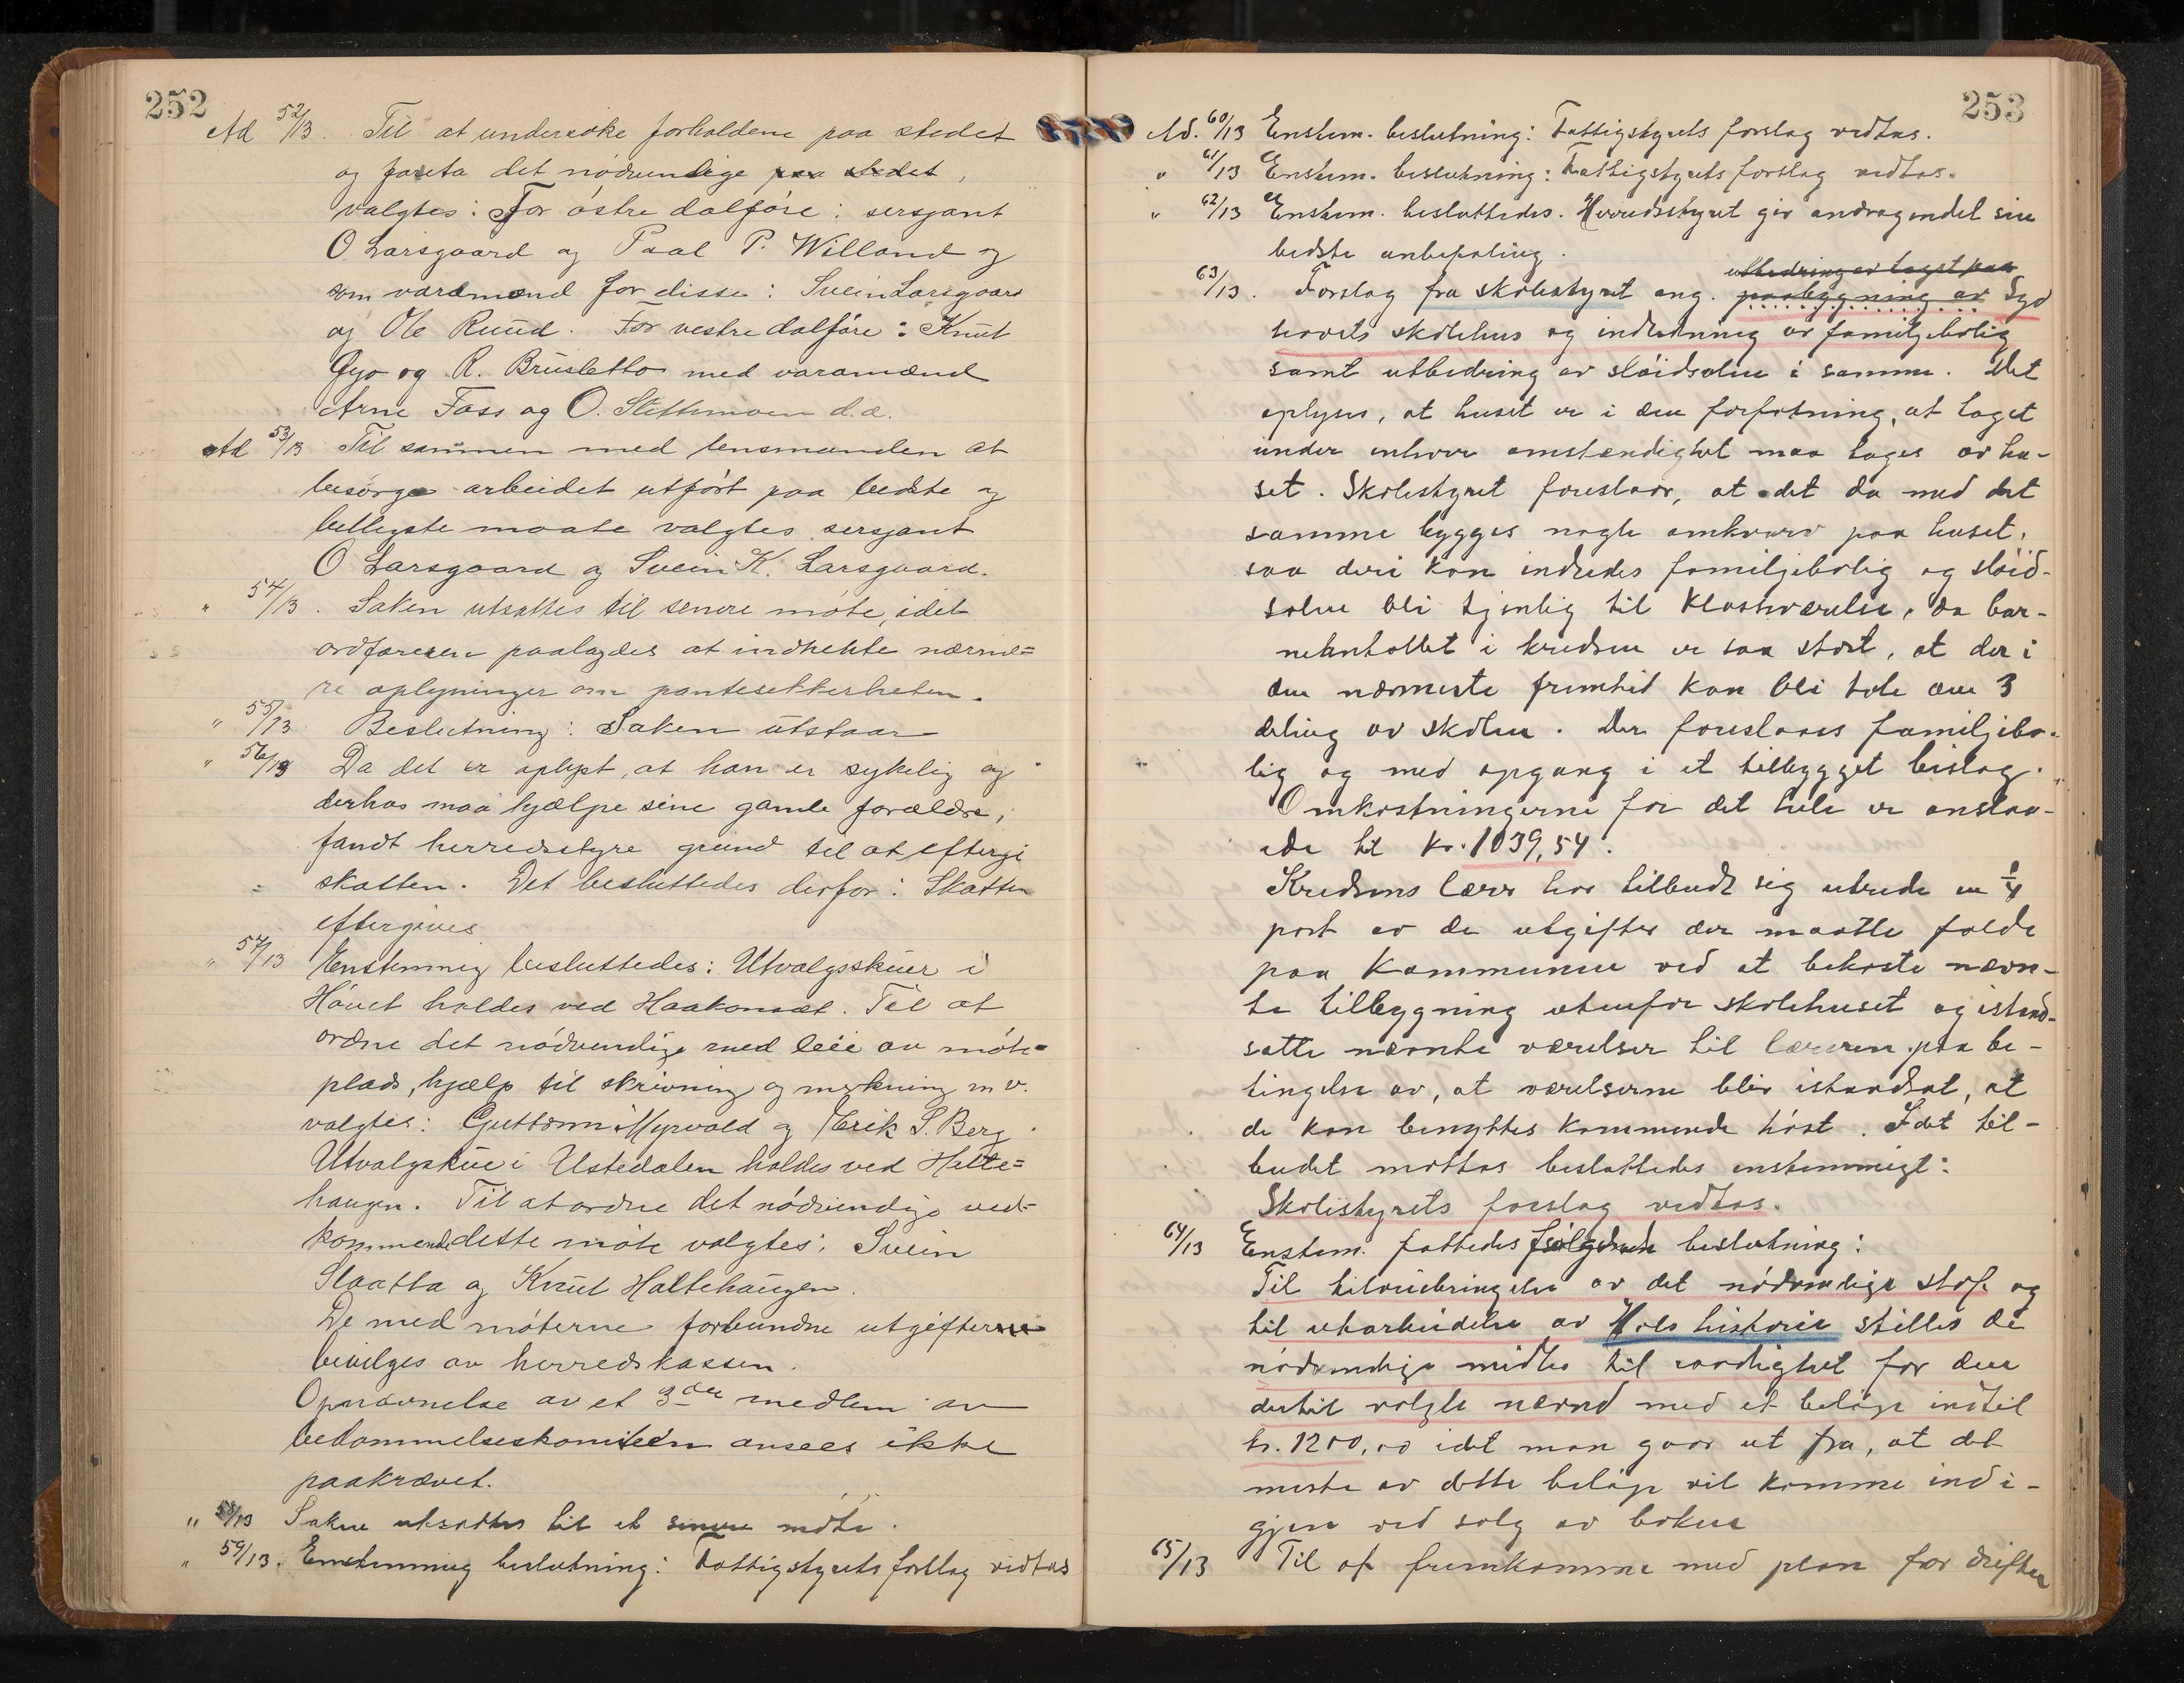 252
Ad 52/13. Til at undersøke forholdene paa stedet
og foreta det nødvendige paa stedet,
valgtes: For østre dalføre: sersjant
O. Larsgaard og Paal P. Willand og
som varamænd for disse: Svein Larsgaard
og Ole Ruud. For vestre dalføre: Knut
Gyo og R. Brusletto med varamænd
Arne Foss og O. Slettemoen d.æ.
Ad 53/13 Til sammen med lensmanden at
besørge arbeidet utført paa bedste og
billigste maate valgtes sersjant
O Larsgaard og Svein K. Larsgaard.
" 54/13. Saken utsattes til senere møte, idet
ordføreren paalagdes at indhente nærme=
re oplysninger om pantesikkerheten.
" 55/13 Beslutning: Saken utstaar
" 56/13 Da det er oplyst, at han er sykelig og
derhos maa hjælpe sine gamle forældre,
fandt herredsstyre grund til at eftergi
skatten. Det besluttedes derfor: Skatten
eftergives
" 57/13 Enstemmig besluttedes: Utvalgsskuer i
Hovet holdes ved Haakonsæt. Til at
ordne det nødvendige med leie av møte=
plads, hjælp til skrivning og merkning m v.
valgtes: Guttorm Myrvold og Erik S. Berg.
Utvalgskue i Ustedalen holdes ved Halte=
haugen. Til at ordne det nødvendige ved=
kommende dette møte valgtes: Svein
Slaatta og Knut Haltehaugen.
De med møterne forbundne utgifterne
bevilges av herredskassen.
Opnævnelse av et 3die medlem av
bedømmelseskomiteen ansees ikke
paakrævet.
" 58/13 Saken utsættes til et senere møte.
" 59/13. Enstemmig beslutning: Fattigstyrets forslag vedtas
253
Ad. 60/13 Enstem. beslutning: Fattigstyrets forslag vedtas.
" 61/13 Enstem. beslutning: Fattigstyrets forslag vedtas.
" 62/13 Enstem. besluttedes. Herredsstyret gir andragendet sin
bedste anbefaling.
utbedring av taget paa
63/13. Forslag fra skolestyret ang. paabygning av Syd
hovets skolehus og indredning av familjebolig
samt utbedring av sløidsalen i samme. Det
oplyses, at huset er i den forfatning, at taget
under enhver omstændighet maa tages av hu-
set. Skolestyret foreslaar, at det da med det
samme bygges nogle omkvarv paa huset,
saa deri kan indredes familjebolig og sløid-
salen bli tjenlig til klasseværelse, da bar-
neantallet i kredsen er saa stort, at der i
den nærmeste fremtid kan bli tale om 3
deling av skolen. Der foreslaaes familjebo-
lig og med opgang i et tilbygget bislag.
Omkostningerne for det hele er anslaa-
ede til kr. 1039,54.
Kredsens lærer har tilbudt sig utrede en 1/4
part av de utgifter der maatte falde
paa Kommunen ved at bekoste nævn-
te tilbygning utenfor skolehuset og istand-
sætte nævnte værelser til læreren paa be-
tingelse av, at værelserne blir istandsat, at
de kan benyttes kommende høst. Idet til-
budet mottas besluttedes enstemmigt:
Skolestyrets forslag vedtas.
64/13 Enstem. fattedes følgende beslutning:
Til tilveiebringelse av det nødvendige stof og
til utarbeidelse av Hols historie stilles de
nødvendige midler til raadighet for den
dertil valgte nævnd med et beløp indtil
kr. 1200,00 idet man gaar ut fra, at det
meste av dette beløp vil komme ind i-
gjen ved salg av boken
65/13 Til at fremkomme med plan for driften